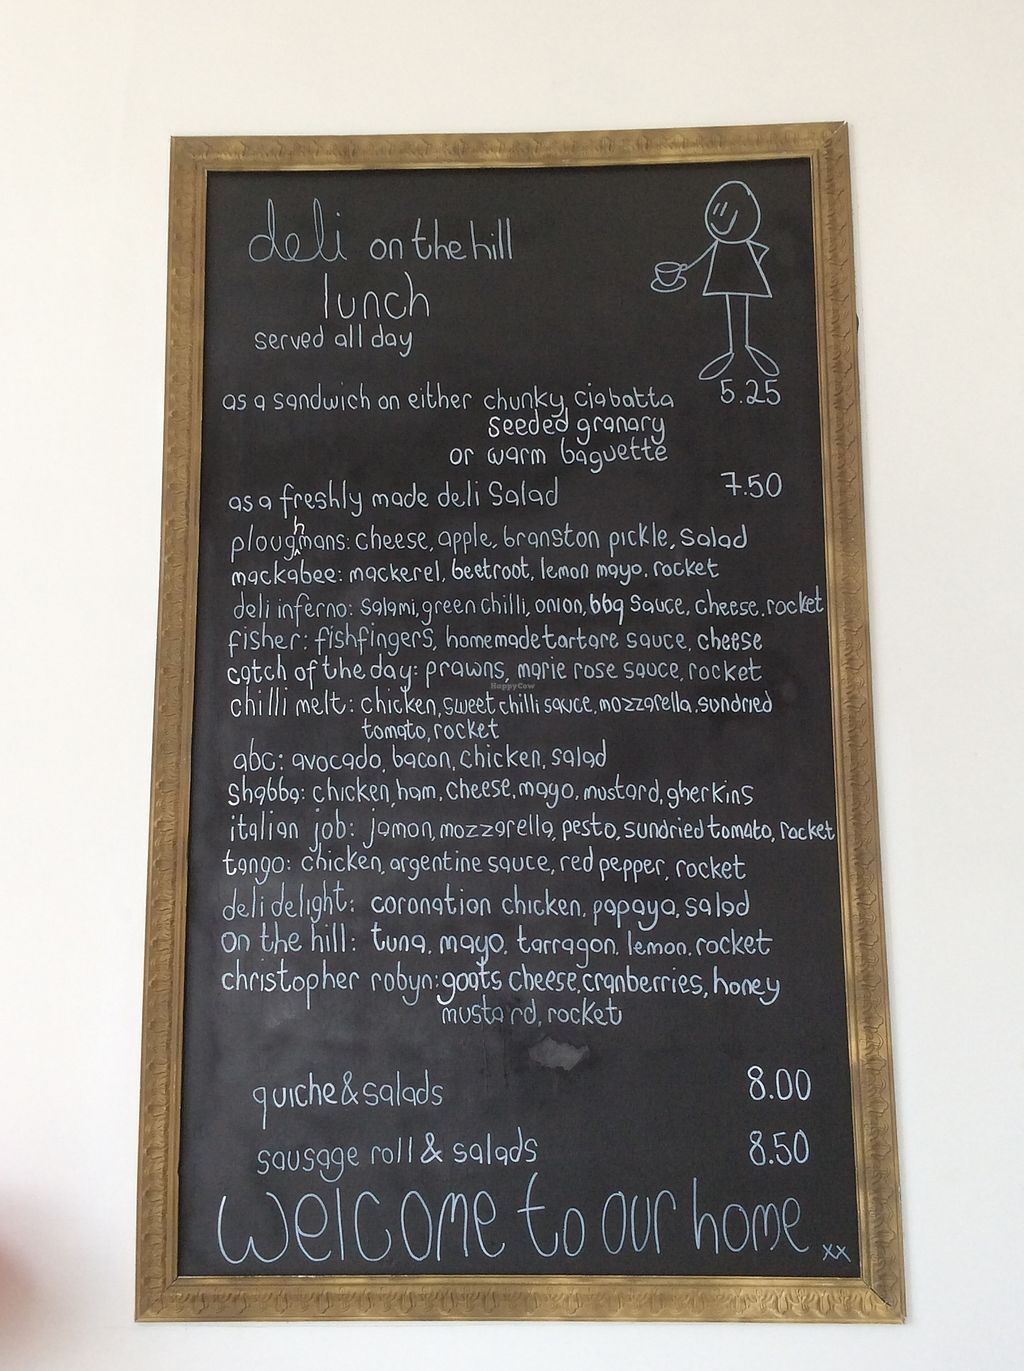 deli on the hill
lunch
served all day
as a sandwich on either chunky ciabatta 5.25
seeded granary
or warm baguette
as a freshly made deli Salad 7.50
ploughmans: cheese, apple, branston pickle, salad
mackabee: mackerel, beetroot, lemon mayo, rocket
deli inferno: salami, green chilli, onion, bbq sauce, cheese, rocket
fisher: fishfingers, homemade tartare sauce, cheese
catch of the day: prawns, marie rose sauce, rocket
HappyCow
chilli melt: chicken, sweet chilli sauce, mozzarella, sundried
tomato, rocket
abc: avocado, bacon, chicken, salad
shabba: chicken, ham, cheese, mayo, mustard, gherkins
italian job: jamon, mozzarella, pesto, sundried tomato, rocket
tango: chicken, argentine sauce, red pepper, rocket
deli delight: coronation chicken, papaya, salad
on the hill: tuna, mayo, tarragon, lemon, rocket
christopher robyn: goats cheese, cranberries, honey
mustard, rocket
quiche & salads 8.00
sausage roll & salads 8.50
welcome to our home xx